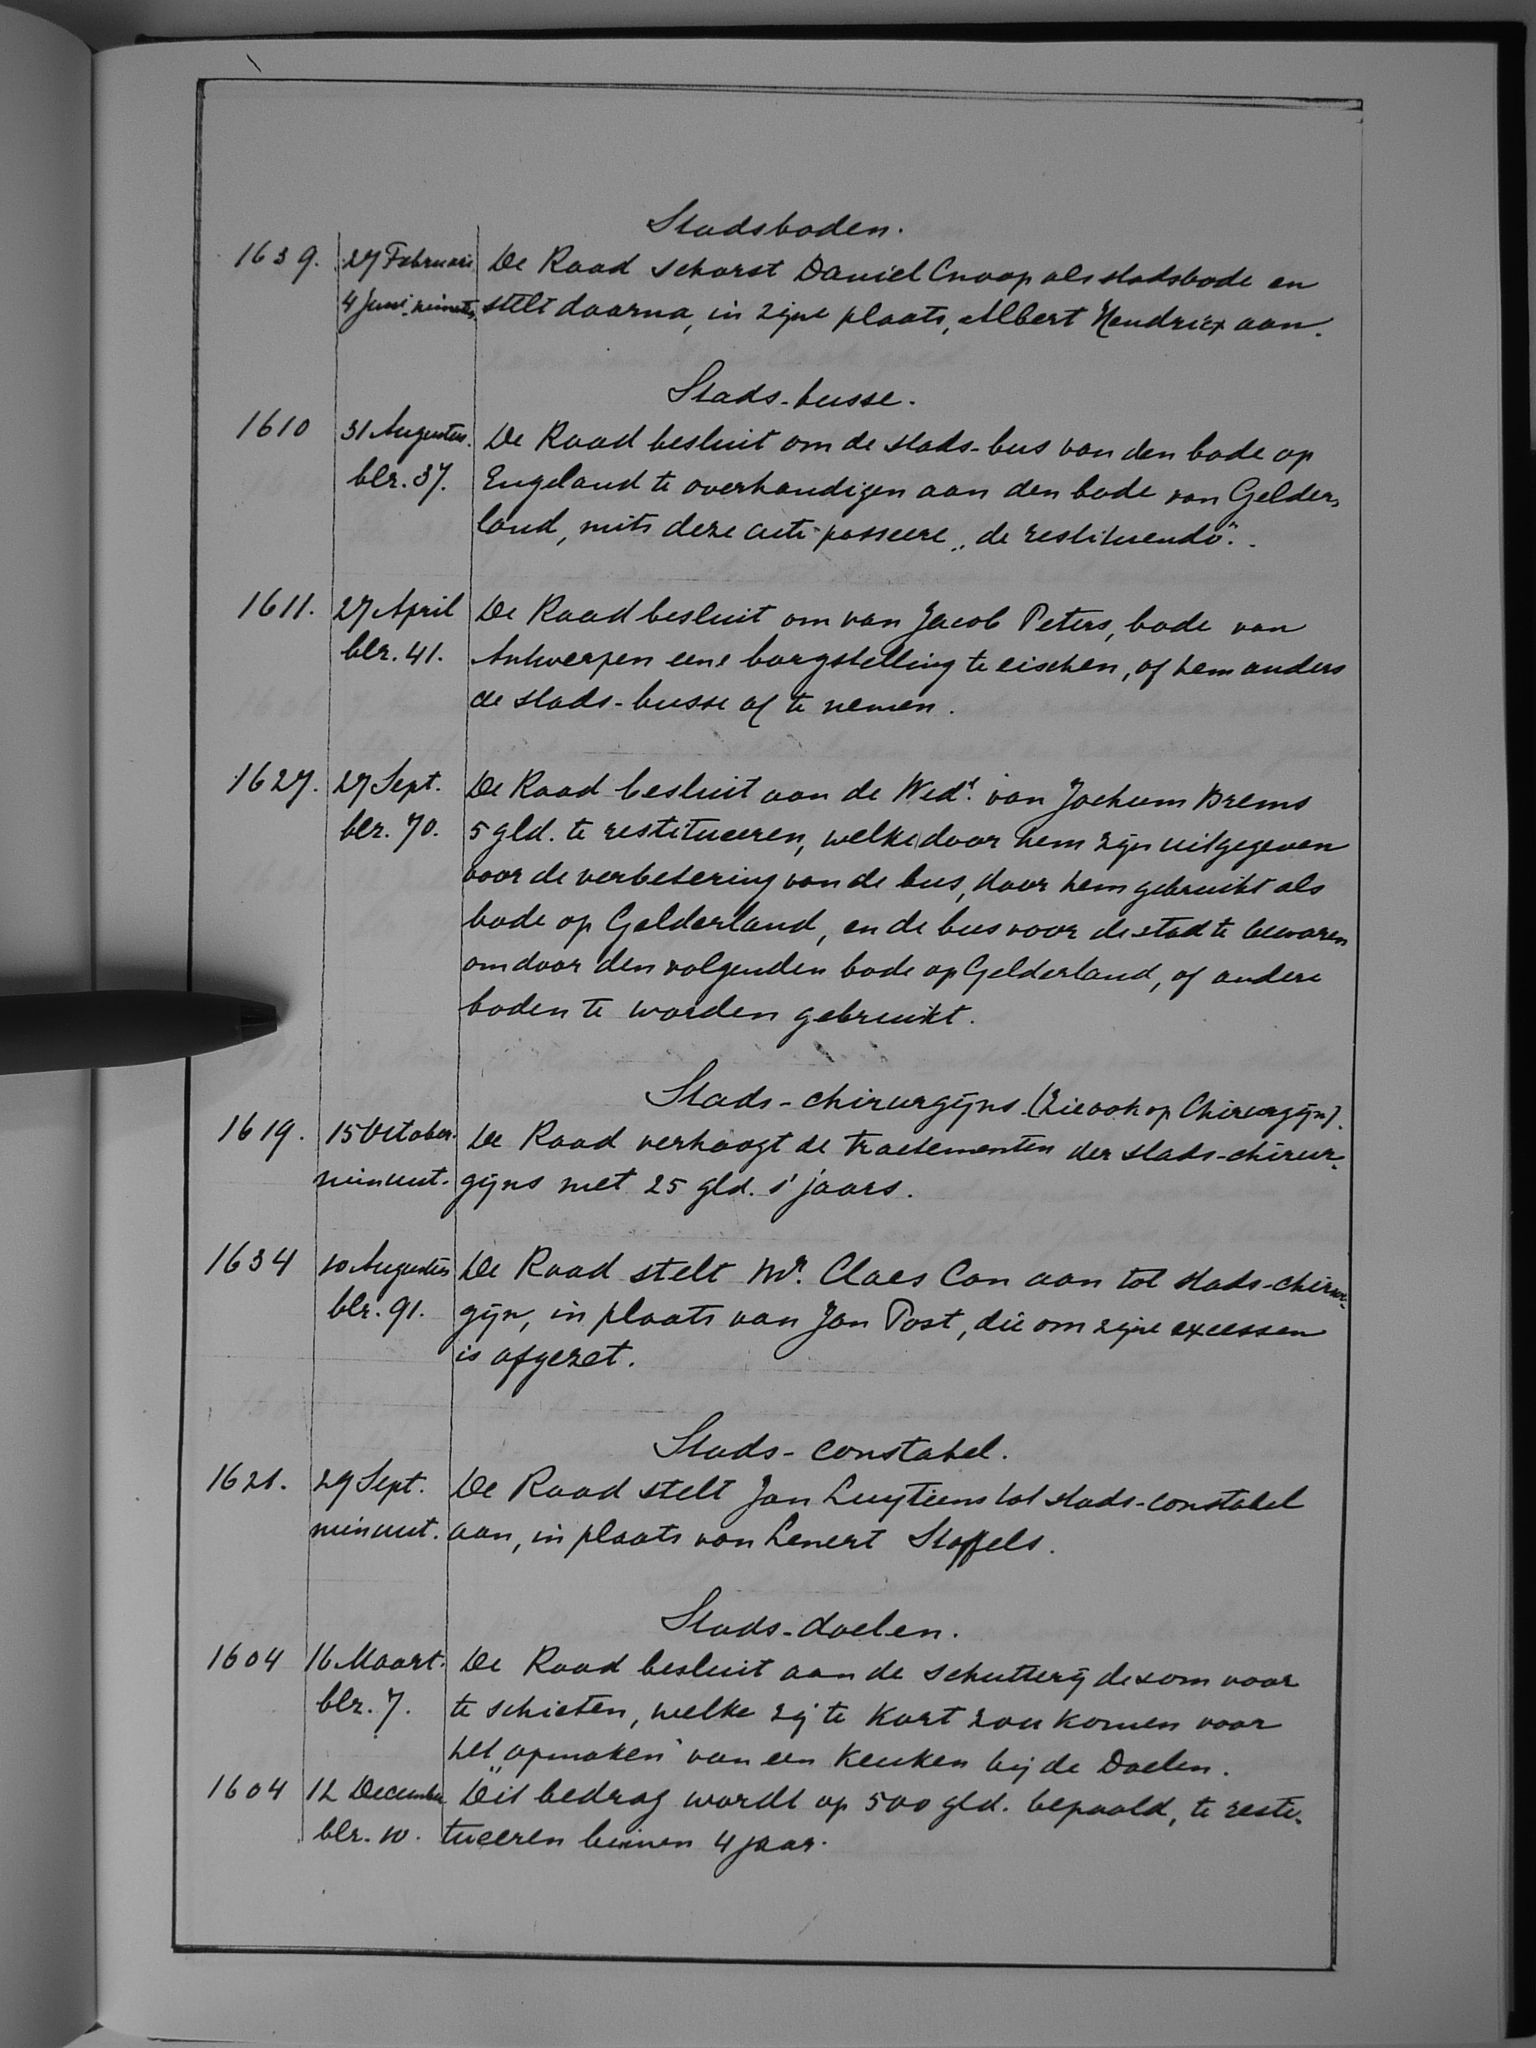 Stadsboden.
1639. 27 Februari De Raad schorst Daniel Cnoop als stadsbode en
4 Juni. minuts stelt daarna, in zijne plaats, Albert Hendricx aan.
Stads-busse.
1610 31 Augustus. De Raad besluit om de stads-bus van den bode op
blz. 37. Engeland te overhandigen aan den bode van Gelder-
land, mits deze acte passeere „de restituendo".
1611. 27 April De Raad besluit om van Jacob Peters, bode van
blz. 41. Antwerpen eene borgstelling te eischen, of hem anders
de stads-busse af te nemen.
1627. 27 Sept. De Raad besluit aan de Wede. van Jochum Brems
blz. 70. 5 gld. te restitueeren, welke door hem zijn uitgegeven
voor de verbetering van de bus, door hem gebruikt als
bode op Gelderland, en de bus voor de stad te bewaren
om door den volgenden bode op Gelderland, of andere
boden te worden gebruikt.
Stads-chirurgijns. (Zie ook op Chirurgijn).
1619. 15 October. De Raad verhoogt de tractementen der stads-chirur-
minuut. gijns met 25 gld. s' jaars.
1634 10 Augustus De Raad stelt Mr. Claes Con aan tot stads-chirur-
blz. 91. gijn, in plaats van Jan Post, die om zijne excessen
is afgezet.
Stads-constabel.
1621. 29 Sept. De Raad stelt Jan Luytiens tot stads-constabel
minuut. aan, in plaats van Lenert Stoffels.
Stads-doelen.
1604 16 Maart. De Raad besluit aan de schutterij de som voor
blz. 7. te schieten, welke zij te kort zou komen voor
het „opmaken" van een keuken bij de Doelen.
1604 12 December Dit bedrag wordt op 500 gld. bepaald, te resti-
blz. 10. tueeren binnen 4 jaar.